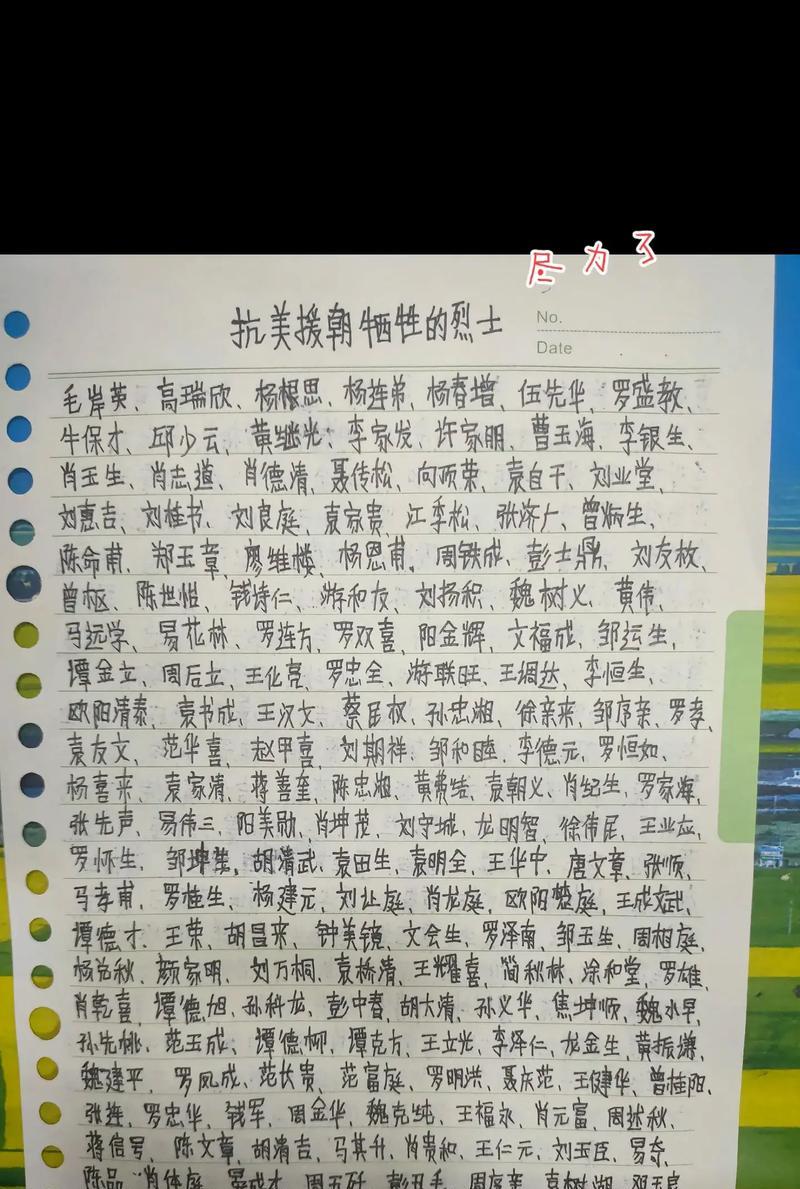 尽力了
抗美援朝牺牲的烈士
No.
Date
毛岸英、高瑞欣、杨根思、杨连弟、杨春增、伍先华、罗盛教、
牛保才、邱少云、黄继光、李家发、许家朋、曹玉海、李银生、
肖玉生、肖志道、肖德清、聂传松、向顶荣、袁自干、刘业堂、
刘惠吉、刘桂书、刘良庭、袁家贵、江季松、张济广、曾炳生、
陈命甫、郑玉章、廖维楼、杨恩甫、周铁成、彭士鼎、刘友枚、
曾枢、陈世怡、钱诗仁、游和友、刘扬积、魏树义、黄伟、
马远学、易花林、罗连方、罗双喜、阳金辉、文福成、邹运生、
谭金立、周后立、王化亮、罗忠全、游联旺、王调达、李恒生、
欧阳清泰、袁书成、王汉文、蔡臣权、孙忠湘、徐亲来、邹序亲、罗孝、
袁友文、范华喜、赵甲喜、刘期祥、邹和睦、李德元、罗恒如、
杨喜来、袁家清、蒋善奎、陈忠湘、黄贵结、袁朝义、肖纪生、罗家海、
张先声、易伟三、阳美勋、肖坤茂、刘守城、龙明智、徐伟民、王业应、
罗怀生、邹坤笙、胡清武、袁田生、袁明全、王华中、唐文章、张顺、
马孝甫、罗桂生、杨建元、刘让庭、肖龙庭、欧阳楚庭、王成斌、
谭德才、王荣、胡昌来、钟美镜、文会生、罗泽南、邹玉生、周相庭、
杨兑秋、颜家明、刘万桐、袁桥清、王耀喜、简秋林、涂和堂、罗雄、
肖乾喜、谭德旭、孙科龙、彭中春、胡大清、孙义华、焦坤顺、魏水早、
孙先桃、范玉成、谭德柳、谭克方、王立光、李泽仁、龙金生、黄振塘、
魏建平、罗凤成、范长贵、范富庭、罗明洪、聂庆范、王健华、曾桂阳、
张连、罗忠华、钱军、周金华、魏克纯、王福永、肖元富、周述秋、
蒋信号、陈文章、胡清吉、马其升、肖贵和、王仁元、刘玉臣、易奇、
陈品、肖体庭、晏成才、周五、彭丑毛、周序亲、袁树湖、邓玉良